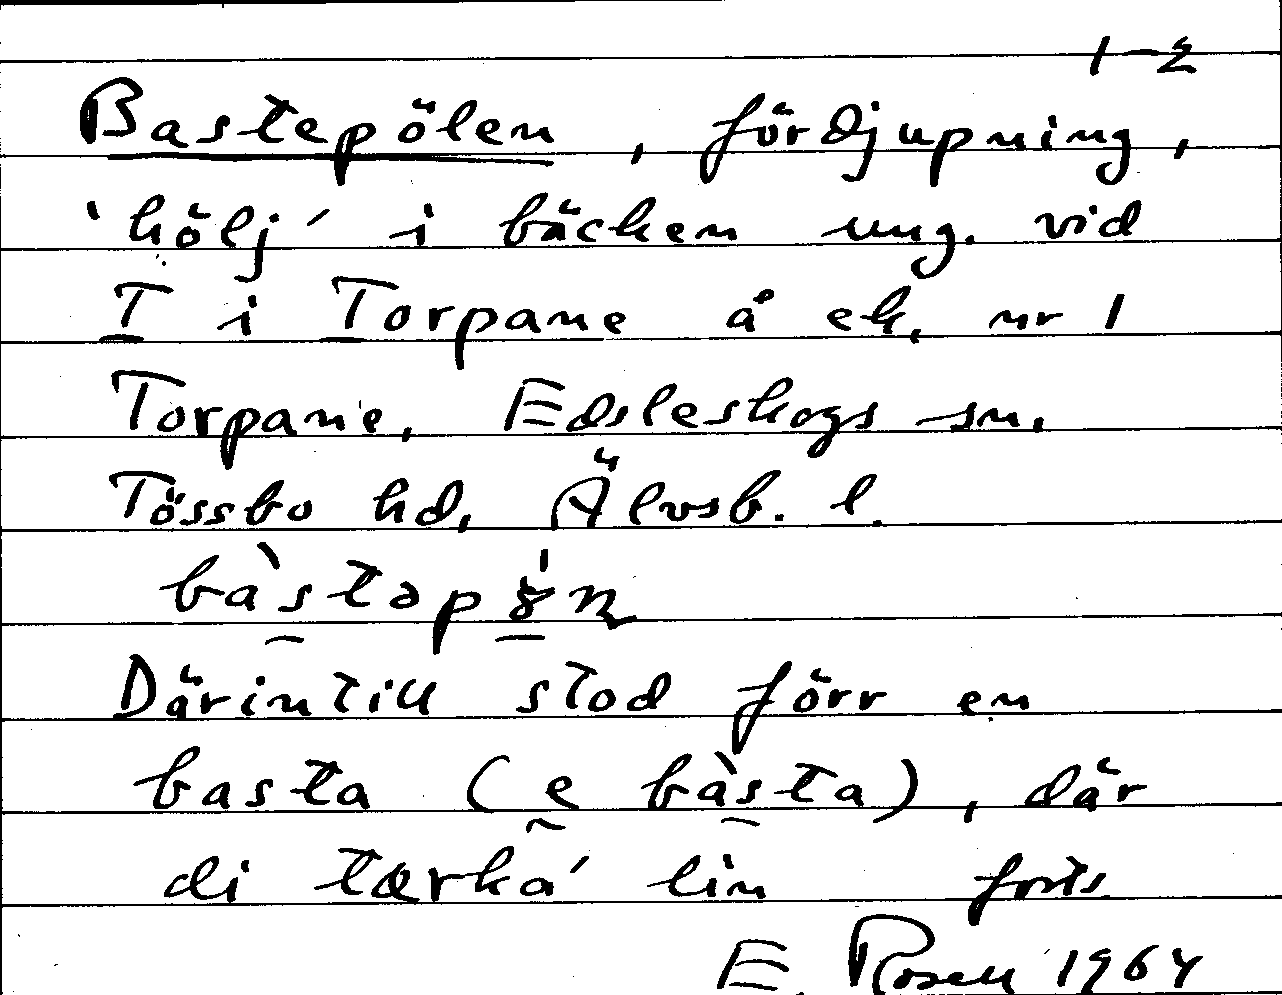 1-2
Bastepölen, fördjupning,
'hölj' i bäcken ung. vid
T i Torpane å ek. nr 1
Torpane, Edsleskogs sn.
Tössbo hd, Älvsb. l.
bàstəp
Därintill stod förr en
basta (e bàsta), där
di tærka' lin forts.
E. Rosell 1964